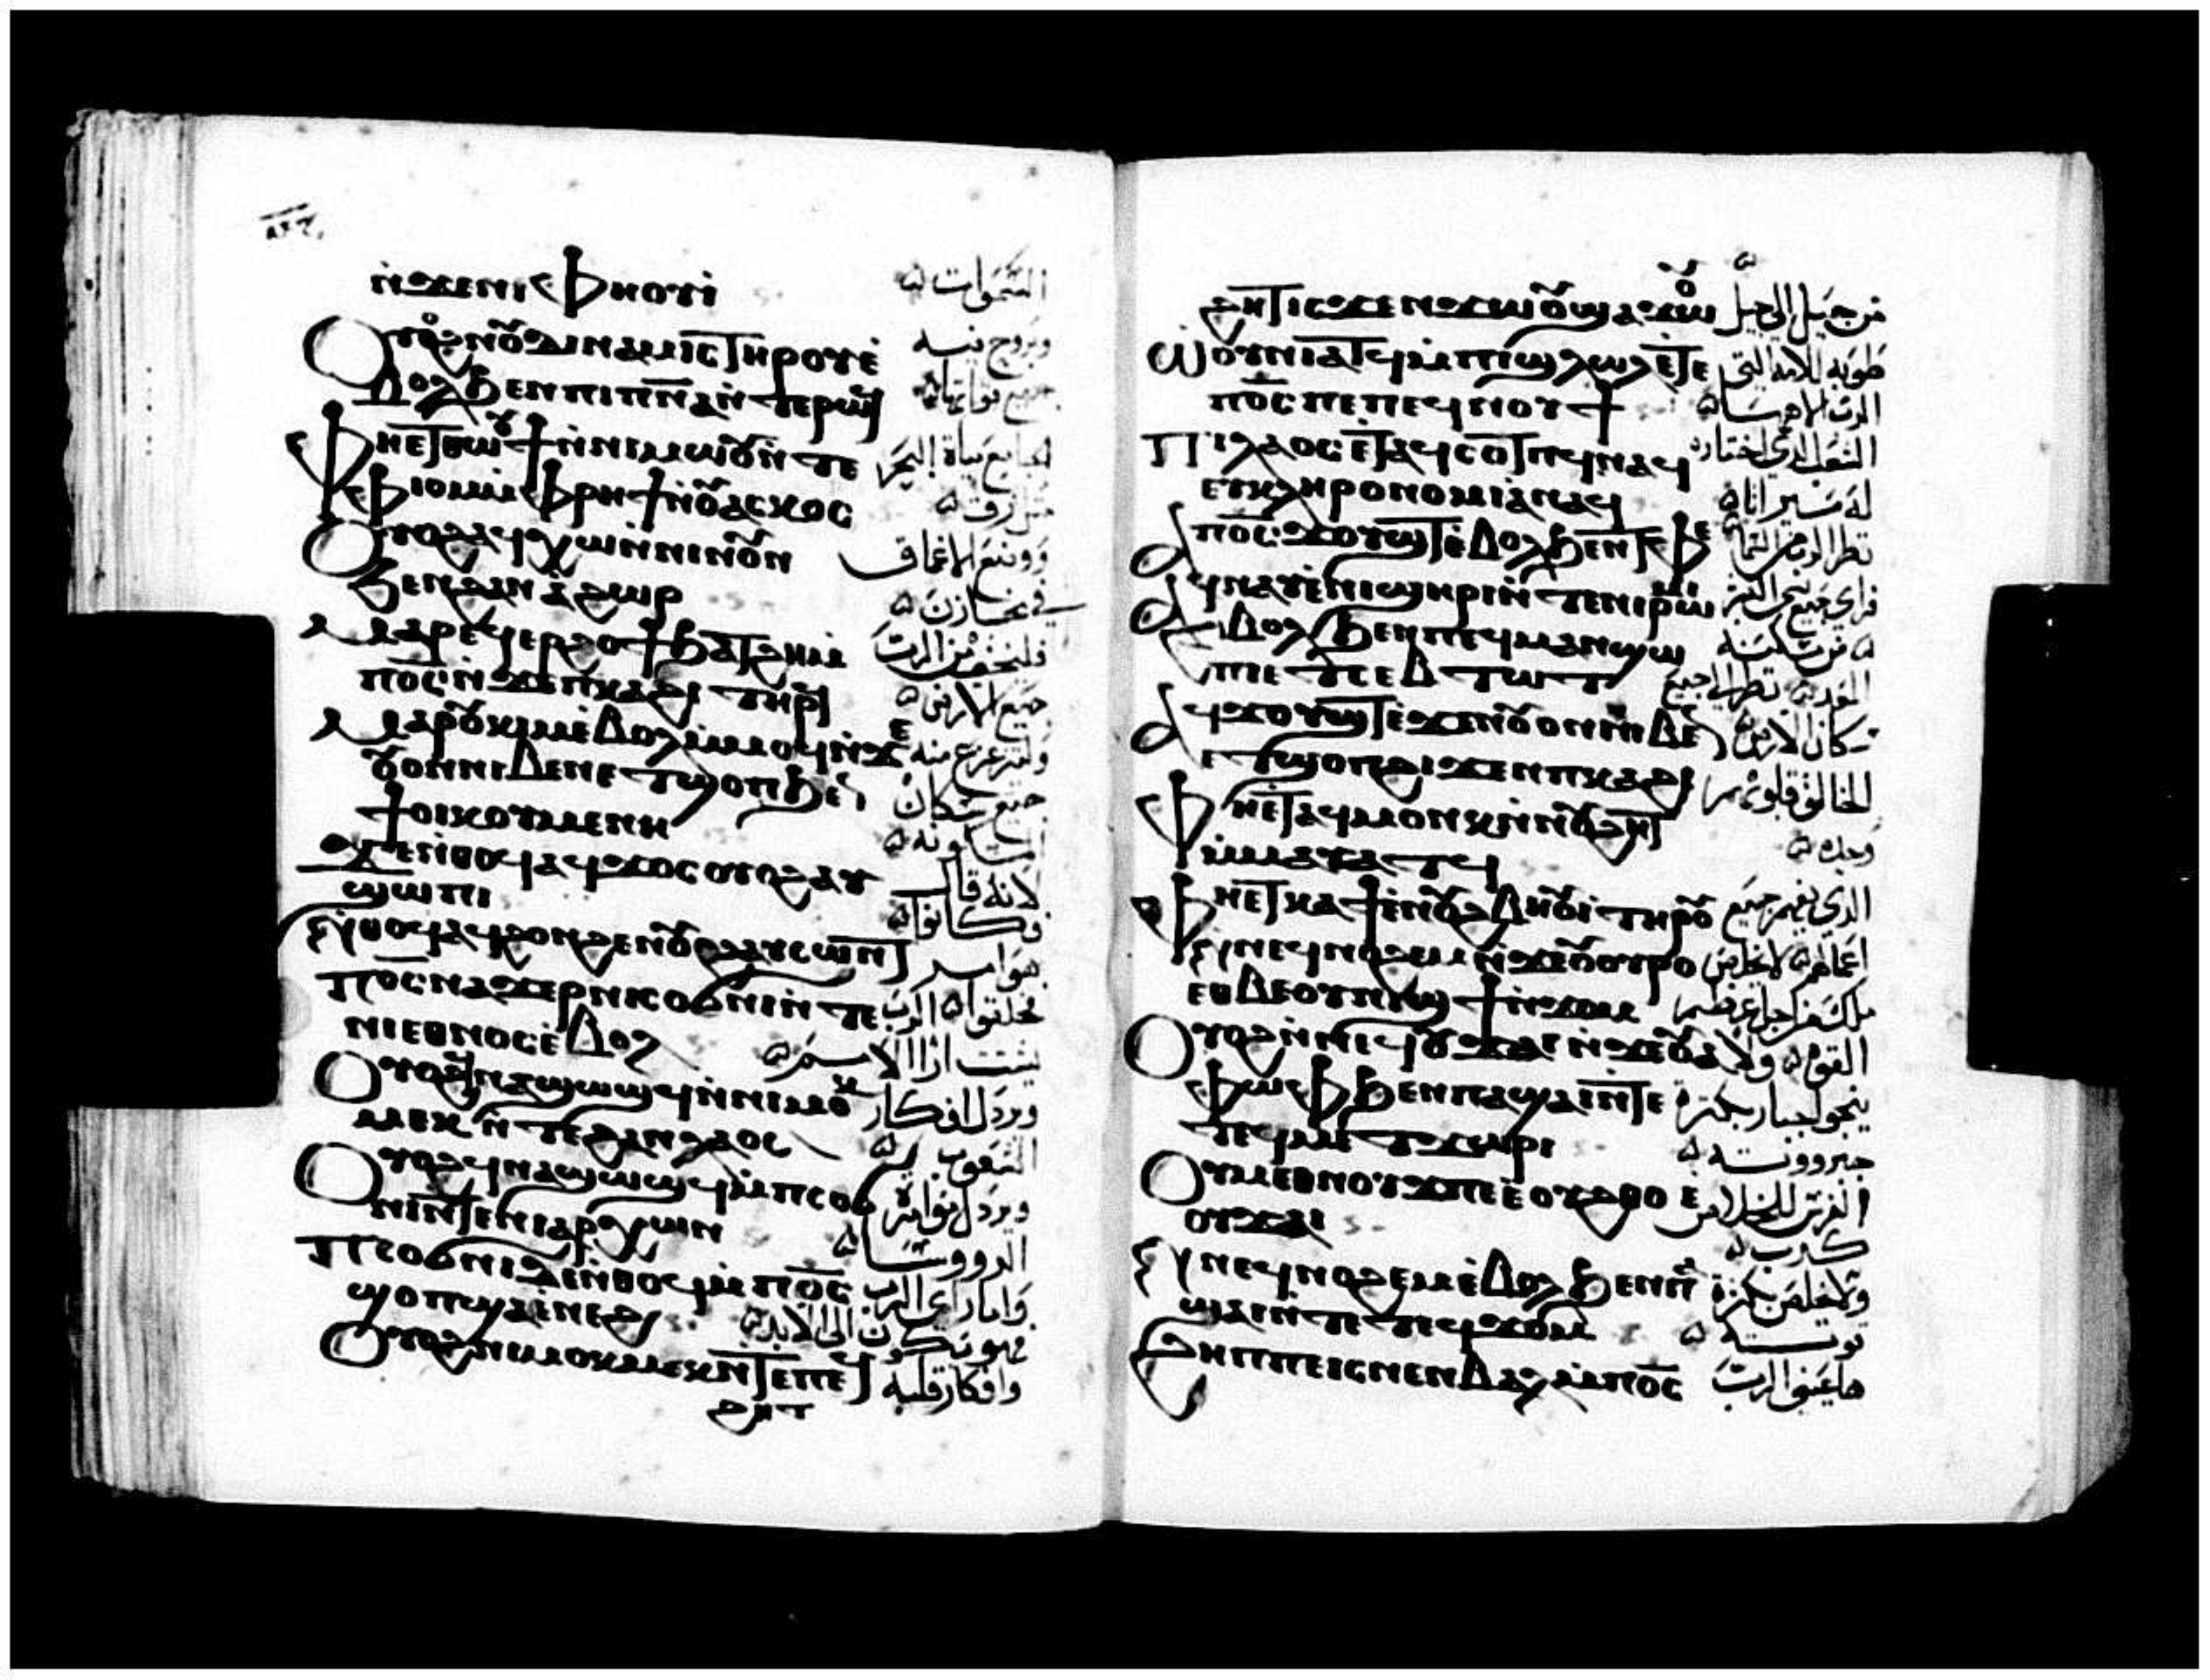 ⲛ̀ϫⲉⲛⲓⲫⲏⲟⲩⲓ̀ السموات
ⲟⲩⲟϩ ⲛⲟⲩϫⲓⲛⲁⲙⲓⲥ ⲧⲏⲣⲟⲩ ⲉ̀ وبروح فيه
ⲃⲟⲗ ϧⲉⲛ ⲡⲓⲡⲛ̅ⲁ̅ ⲛ̀ⲧⲉ ⲣⲱϥ جميع قواتها
ⲫⲏⲉⲧⲑⲱⲟⲩϯ ⲛ̀ⲛⲓⲙⲱⲟⲩ ⲛ̀ⲧⲉ مياه البحر
ⲫⲓⲟⲙ ⲙ̀ⲫⲣⲏϯ ⲛ̀ⲟⲩⲁⲥⲭⲟⲥ مثل زق
ⲟⲩⲟϩ ⲁϥⲭⲱ ⲛ̀ⲛⲓⲛⲟⲩⲛ ووضع الاعماق
ϧⲉⲛ ϩⲁⲛⲁ̀ϩⲱⲣ في مخازن
ⲙⲁⲣⲉϥⲉⲣϩⲟϯ ϧⲁⲧϩⲏ ⲙ̀ فليخف من الرب
ⲡϭⲟⲓⲥ ⲛ̀ϫⲉ ⲡⲕⲁϩⲓ ⲧⲏⲣϥ جميع الارض
ⲙⲁⲣⲟⲩⲕⲓⲙ ⲉ̀ⲃⲟⲗ ⲙ̀ⲙⲟϥ ⲛ̀ϫⲉ ولتزعزع منه
ⲟⲩⲟⲛ ⲛⲓⲃⲉⲛ ⲉⲧϣⲟⲡ ϧⲉⲛ جميع سكان
ϯⲟⲓⲕⲟⲩⲙⲉⲛⲏ المسكونه
ϫⲉ ⲛ̀ⲑⲟϥ ⲁϥϫⲟⲥ ⲟⲩⲟϩ ⲁⲩ لانه قال
ϣⲱⲡⲓ فكانوا
ⲛ̀ⲑⲟϥ ⲁϥϩⲟⲛϩⲉⲛ ⲟⲩⲟϩ ⲁⲩⲥⲱⲛⲧ هو امر
ⲡϭⲟⲓⲥ ⲛⲁϫⲉⲣ ⲛⲓⲥⲟϭⲛⲓ ⲛ̀ⲧⲉ فخلقوا الرب
ⲛⲓⲉⲑⲛⲟⲥ ⲉ̀ⲃⲟⲗ يشتت ارا الامم
ⲟⲩⲟϩ ϥⲛⲁϣⲱϣϥ ⲛ̀ⲛⲓⲙⲟⲕ ويرذل افكار
ⲙⲉⲕ ⲛ̀ⲧⲉ ϩⲁⲛⲗⲁⲟⲥ الشعوب
ⲟⲩⲟϩ ϥⲛⲁϣⲱϣϥ ⲙ̀ⲡⲥⲟϭ ويرذل
ⲛⲓ ⲛ̀ⲧⲉ ⲛⲓⲁⲣⲭⲱⲛ الرووسا
ⲡⲥⲟϭⲛⲓ ⲇⲉ ⲛ̀ⲑⲟϥ ⲙ̀ⲡϭⲟⲓⲥ واما راي الرب
ϣⲟⲡ ϣⲁ ⲉ̀ⲛⲉϩ فهو يكون الى الابد
ⲟⲩⲟϩ ⲛⲓⲙⲟⲕⲙⲉⲕ ⲛ̀ⲧⲉ ⲡⲉϥ وافكار قلبه
ϩⲏⲧ
ϩⲏⲧ ⲓⲥϫⲉⲛ ϫⲱⲟⲩ ϣⲁ ϫⲱⲟⲩ من جيل الى جيل
ⲱ̀ⲟⲩⲛⲓⲁⲧϥ ⲙ̀ⲡⲓϣⲗⲱⲗ ⲉ̀ⲧⲉ طوبه للامه التى
ⲡϭⲟⲓⲥ ⲡⲉ ⲡⲉϥⲛⲟⲩϯ الرب الاهها
ⲡⲓⲗⲁⲟⲥ ⲉ̀ⲧⲁϥⲥⲟⲧⲡϥ ⲛⲁϥ الشعب الذى اختاره
ⲉⲩⲕⲗⲏⲣⲟⲛⲟⲙⲓⲁ ⲛⲁϥ له ميراثا
ⲁ ⲡϭⲟⲓⲥ ϫⲟⲩϣⲧ ⲉ̀ⲃⲟⲗ ϧⲉⲛ ⲧⲫⲉ نظر الرب من السما
ⲁϥⲛⲁⲩ ⲉ̀ⲛⲓϣⲏⲣⲓ ⲛ̀ⲧⲉ ⲛⲓⲣⲱⲙⲓ فراى جميع بنى البشر
ⲉ̀ⲃⲟⲗ ϧⲉⲛ ⲡⲉϥⲙⲁⲛϣⲱ من مسكنه
ⲡⲓ ⲉⲧⲥⲉⲃⲧⲱⲧ المعد نظر الى جميع
ⲁϥϫⲟⲩϣⲧ ⲉ̀ϫⲉⲛ ⲟⲩⲟⲛ ⲛⲓⲃⲉⲛ سكان الارض
ⲉⲧϣⲟⲡ ϩⲓϫⲉⲛ ⲡⲕⲁϩⲓ الخالق قلوبهم
ⲫⲏⲉ̀ⲧⲁϥⲙⲟⲛⲕ ⲛ̀ⲛⲟⲩϩⲏⲧ
ⲙ̀ⲙⲁⲩⲁⲧϥ وحده
ⲫⲏⲉⲧⲕⲁϯ ⲉ̀ⲛⲟⲩϩⲃⲏⲟⲩⲓ̀ ⲧⲏⲣⲟⲩ الذى يفهم جميع
ϥⲛⲉϥⲛⲟϩⲉⲙ ⲛ̀ϫⲉ ⲟⲩⲟⲩⲣⲟ اعمالهم لا يخلص
ⲉⲑⲃⲉ ⲟⲩⲛⲓϣϯ ⲛ̀ϫⲟⲙ ملك من اجل عظم
ⲟⲩⲟϩ ⲛ̀ⲛⲉϥⲟⲩϫⲁⲓ ⲛ̀ϫⲉ ⲟⲩⲁ القوه ولا
ⲫⲱⲫ ϧⲉⲛ ⲡⲁϣⲁⲓ ⲛ̀ⲧⲉ ينجو جبار بكثرة
ⲧⲉϥⲙⲉⲧϫⲱⲣⲓ جبروته
ⲟⲩⲙⲉⲑⲛⲟⲩϫ ⲡⲉ ⲉ̀ⲟⲩϩⲑⲟ ⲉ الفرس للخلاص
ⲟⲩϫⲁⲓ كذب
ϥⲛⲉϥⲛⲟϩⲉⲙ ⲉ̀ⲃⲟⲗ ϧⲉⲛ ⲡⲁ̀ ولا يخلص بكثرة
ϣⲁⲓ ⲛ̀ⲧⲉ ⲧⲉϥϫⲟⲙ قوته
ϩⲏⲡⲡⲉ ⲓⲥ ⲛⲉⲛⲃⲁⲗ ⲙ̀ⲡϭⲟⲓⲥ ها عينى الرب